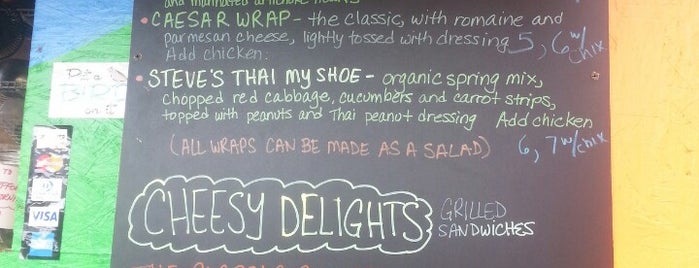 and marinated artichoke hearts
• CAESAR WRAP - the classic, with romaine and
parmesan cheese, lightly tossed with dressing 5, 6 w/ chix
Add chicken.
• STEVE'S THAI MY SHOE - organic spring mix,
chopped red cabbage, cucumbers and carrot strips,
topped with peanuts and Thai peanut dressing Add chicken
6, 7 w/ chix
(ALL WRAPS CAN BE MADE AS A SALAD)
CHEESY DELIGHTS
GRILLED
SANDWICHES
Put a
BIRD
on it
VISA